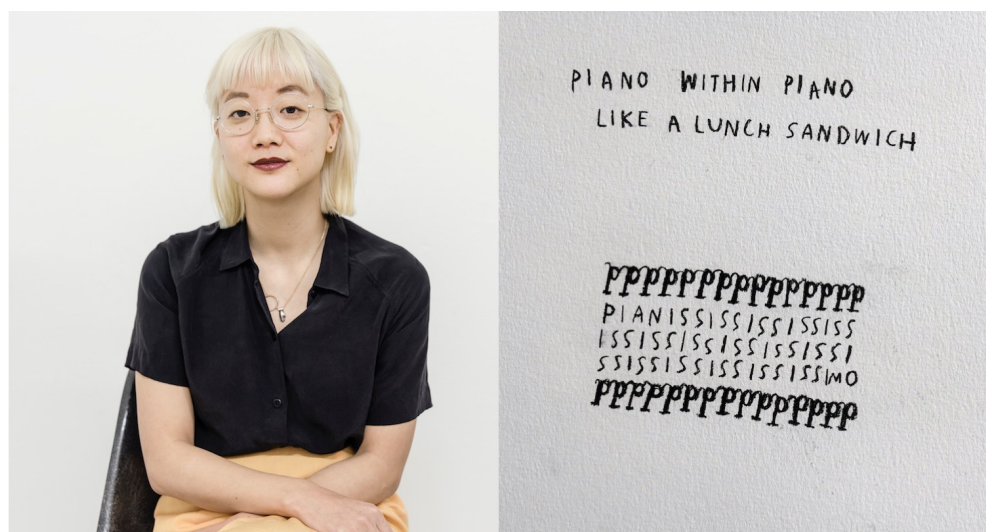 PIANO WITHIN PIANO
LIKE A LUNCH SANDWICH
pppppppppppppppp
PIANISSISSISSISSISS
ISSISSISSISSISSISSI
SSISSISSISSISSISSIMO
pppppppppppppppp